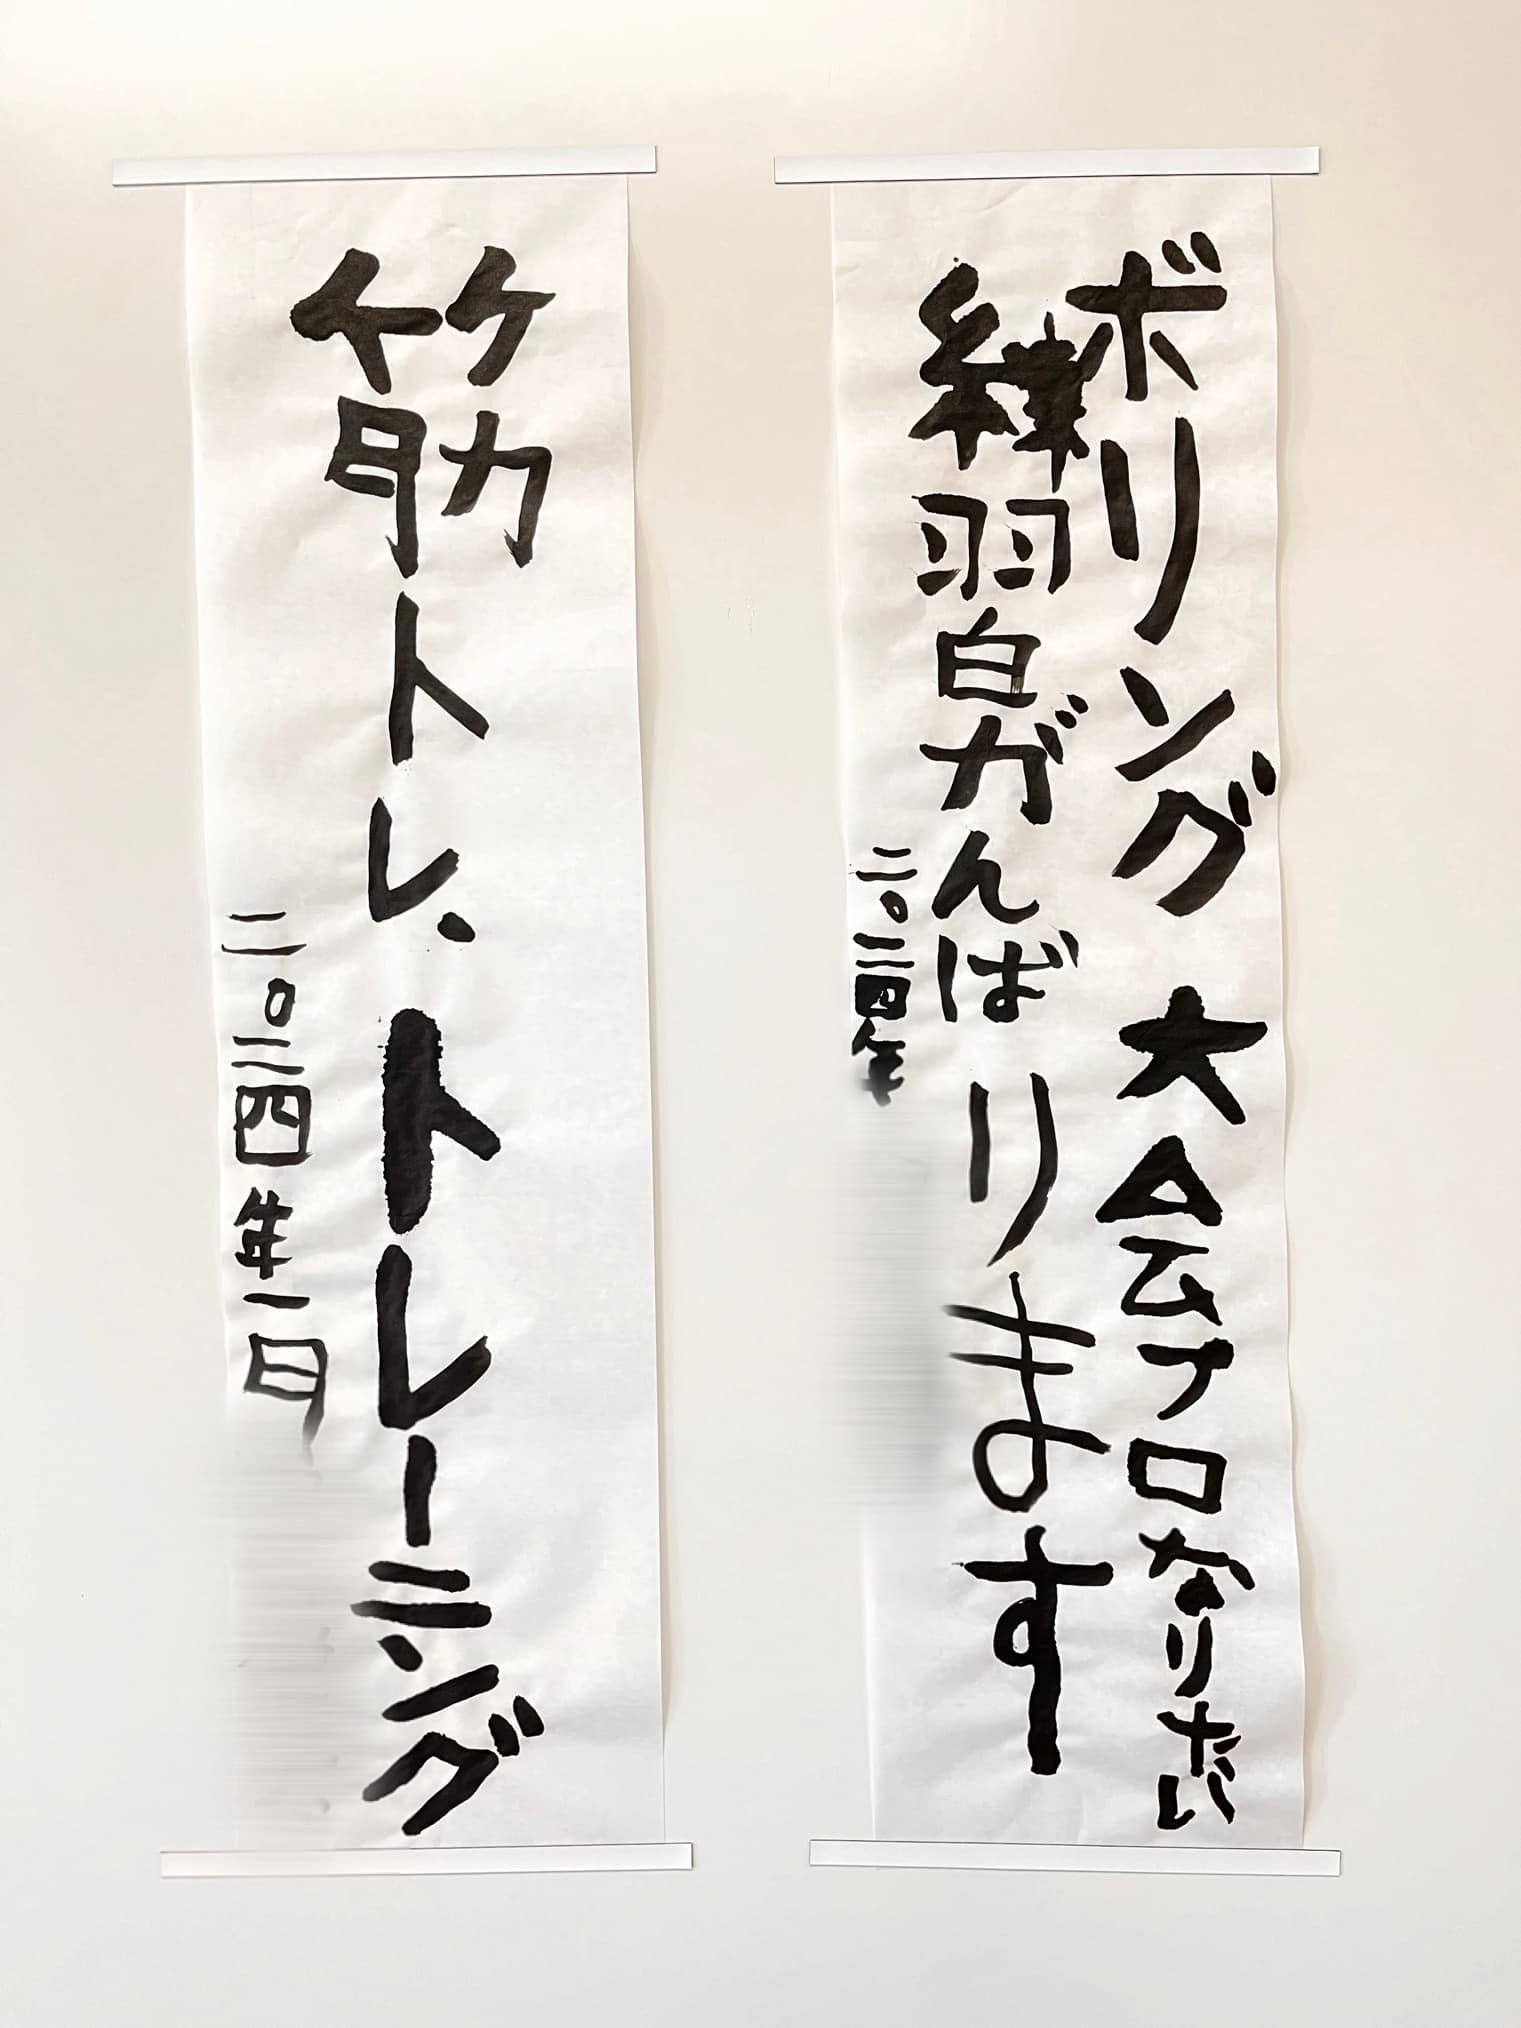 ボリング 大会プロなりたい
練習ガんばります
二〇二四年
筋トレ、トレーニング
二〇二四年一月